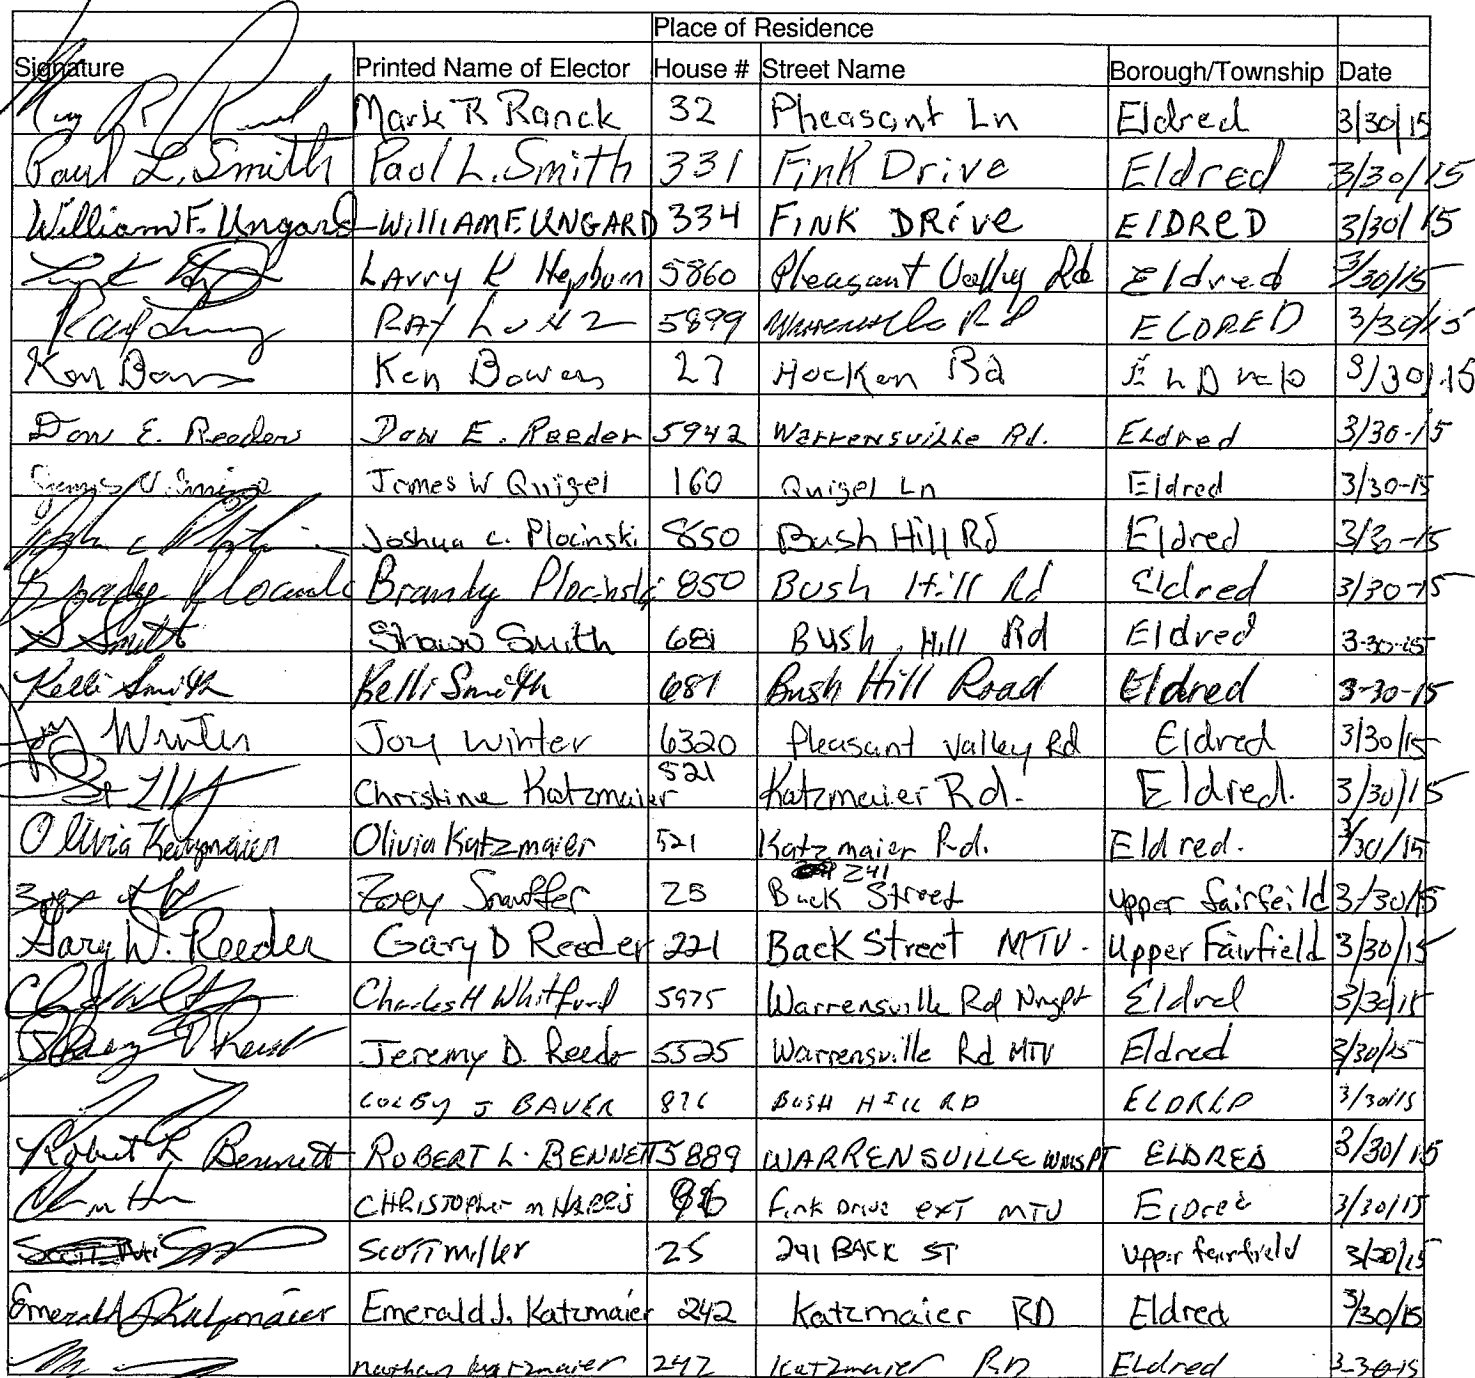 Place of Residence
Signature Printed Name of Elector House # Street Name Borough/Township Date
Mark R Ranck 32 Pheasant Ln Eldred 3/30/15
Paul L. Smith Paul L. Smith 331 Fink Drive Eldred 3/30/15
William F. Ungard WILLIAM F. UNGARD 334 FINK DRive ElDReD 3/30/15
LArry K Hepburn 5860 Pleasant Valley Rd Eldred 3/30/15
RAY 5899 Warrensville Rd ELDRED 3/30/15
Ken Bowen 27 Rd 3/30/15
Don E. Reeder Don E. Reeder 5942 Warrensville Rd. Eldred 3/30-15
James W Quigel 160 Quigel Ln Eldred 3/30-15
Joshua C. Plocinski 850 Bush Hill Rd Eldred 3/30-15
Plocinski 850 Bush Hill Rd Eldred 3/30-15
S Smith Shawn Smith 681 Bush Hill Rd Eldred 3-30-15
Kelli Smith Kelli Smith 681 Bush Hill Road Eldred 3-30-15
Joy Winter Joy Winter 6320 Pleasant Valley Rd Eldred 3/30/15
Christine Katzmaier 521 Katzmaier Rd. Eldred. 3/30/15
Olivia Katzmaier Olivia Katzmaier 521 Katzmaier Rd. Eldred. 3/30/15
Zoey 25 241 Back Street Upper fairfeild 3/30/15
Gary W. Reeder Gary D Reeder 221 Back Street MTV. Upper Fairfield 3/30/15
Charles H Whitford 5975 Warrensville Rd Eldred 3/30/15
Jeremy D. Reeder 5525 Warrensville Rd MTV Eldred 3/30/15
COLBY J BAUER 876 BUSH HILL RD ELDRED 3/30/15
Robert L Bennett ROBERT L. BENNETT 5889 WARRENSVILLE WMSPT ELDRED 3/30/15
CHRISTOPHER M HARRIS Fink Drive EXT MTV Eldred 3/30/15
Scott Miller 25 241 BACK ST Upper fairfield 3/30/15
Emerald J Katzmaier Emerald J. Katzmaier 242 Katzmaier RD Eldred 3/30/15
Nathan Katzmaier 242 Katzmaier RD Eldred 3-30-15